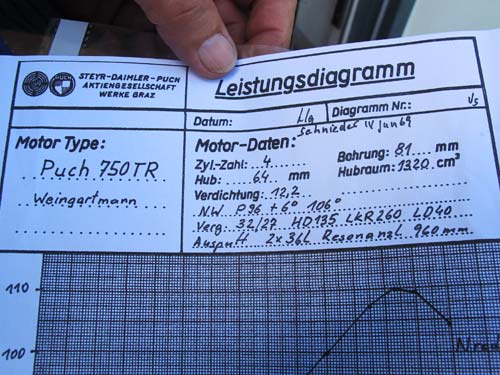 STEYR-DAIMLER-PUCH
AKTIENGESELLSCHAFT
WERKE GRAZ
PUCH
Leistungsdiagramm
Datum:
Diagramm Nr.: V5
Motor Type:
Puch 750TR
Weingartmann
Motor-Daten:
Zyl.-Zahl: 4 Bohrung: 81 mm
Hub: 64 mm Hubraum: 1320 cm³
Verdichtung: 12,2
N.W. P96 +6° 106°
Verg. 32/27 HD135 LKR260 LD40
Auspuff 2x36L Resonanzl. 960mm
110
100